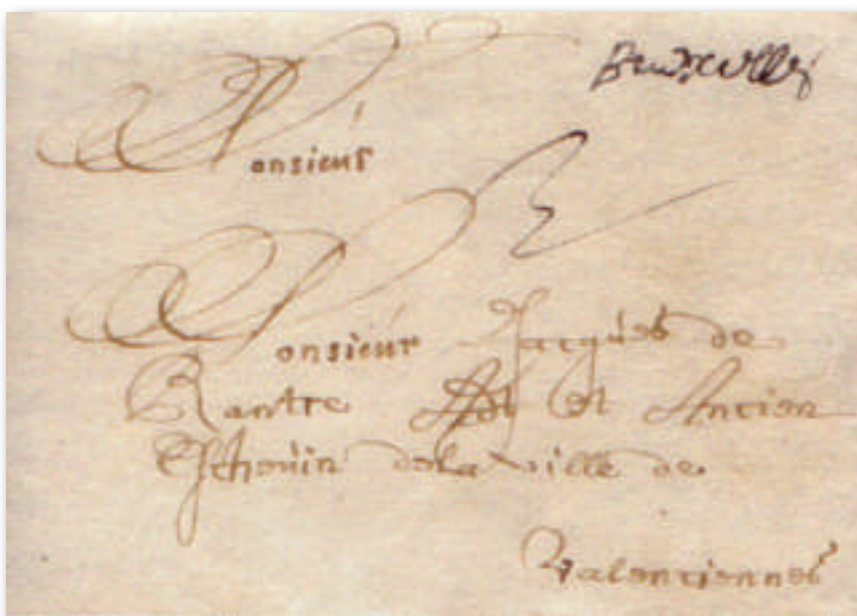 Monsieur
Monsieur Jacques de
Rantre et Ancien
Eschevin dela ville de
Valenciennes